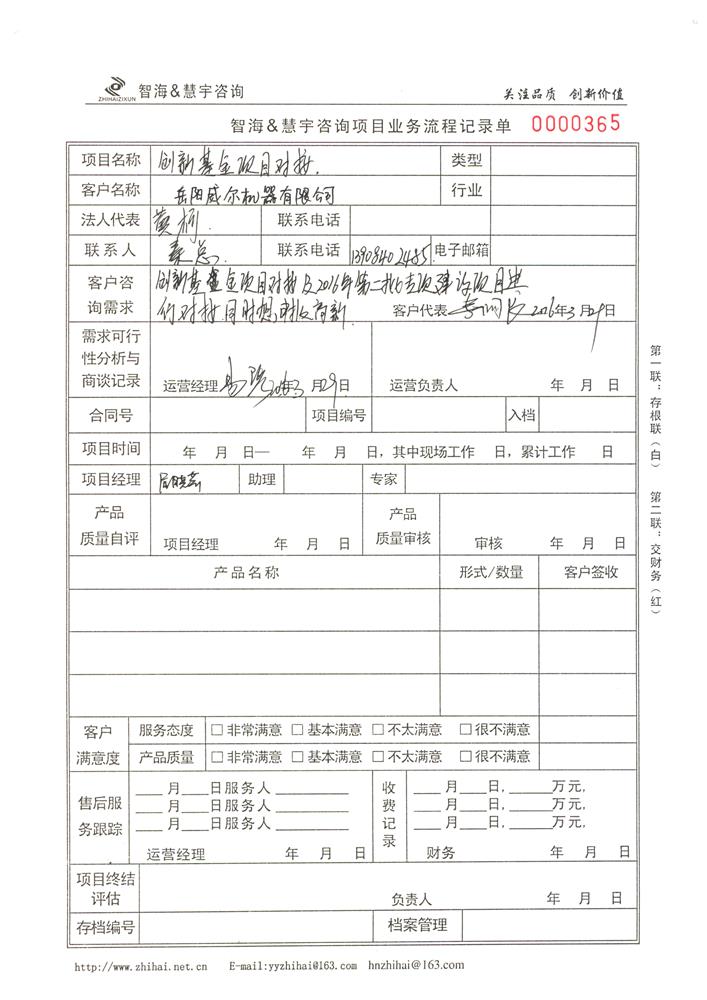 ZHIHAIZIXUN 智海&慧宇咨询 关注品质 创新价值
智海&慧宇咨询项目业务流程记录单 0000365
项目名称 创新基金项目对接. 类型
客户名称 岳阳威尔机器有限公司 行业
法人代表 黄 联系电话
联系人 秦总. 联系电话 电子邮箱
客户咨询需求 创新基金项目对接及2016年第二批专项建设项目进
行对接,同时想 高新. 客户代表 2016年3月29日
需求可行
性分析与
商谈记录
运营经理 2016年3月29日. 运营负责人 年 月 日
合同号 项目编号 入档
项目时间 年 月 日— 年 月 日,其中现场工作 日,累计工作 日
项目经理 助理 专家
产品
质量自评 项目经理 年 月 日
产品
质量审核 审核 年 月 日
产品名称 形式/数量 客户签收
客户
满意度
服务态度 □非常满意 □基本满意 □不太满意 □很不满意
产品质量 □非常满意 □基本满意 □不太满意 □很不满意
售后服
务跟踪
___月___日服务人_________
___月___日服务人_________
___月___日服务人_________
运营经理 年 月 日
收费记录
___月___日,_____万元,
___月___日,_____万元,
___月___日,_____万元,
财务 年 月 日
项目终结
评估
负责人 年 月 日
存档编号 档案管理
http://www.zhihai.net.cn E-mail:yyzhihai@163.com hnzhihai@163.com
第一联:存根联(白) 第二联:交财务(红)